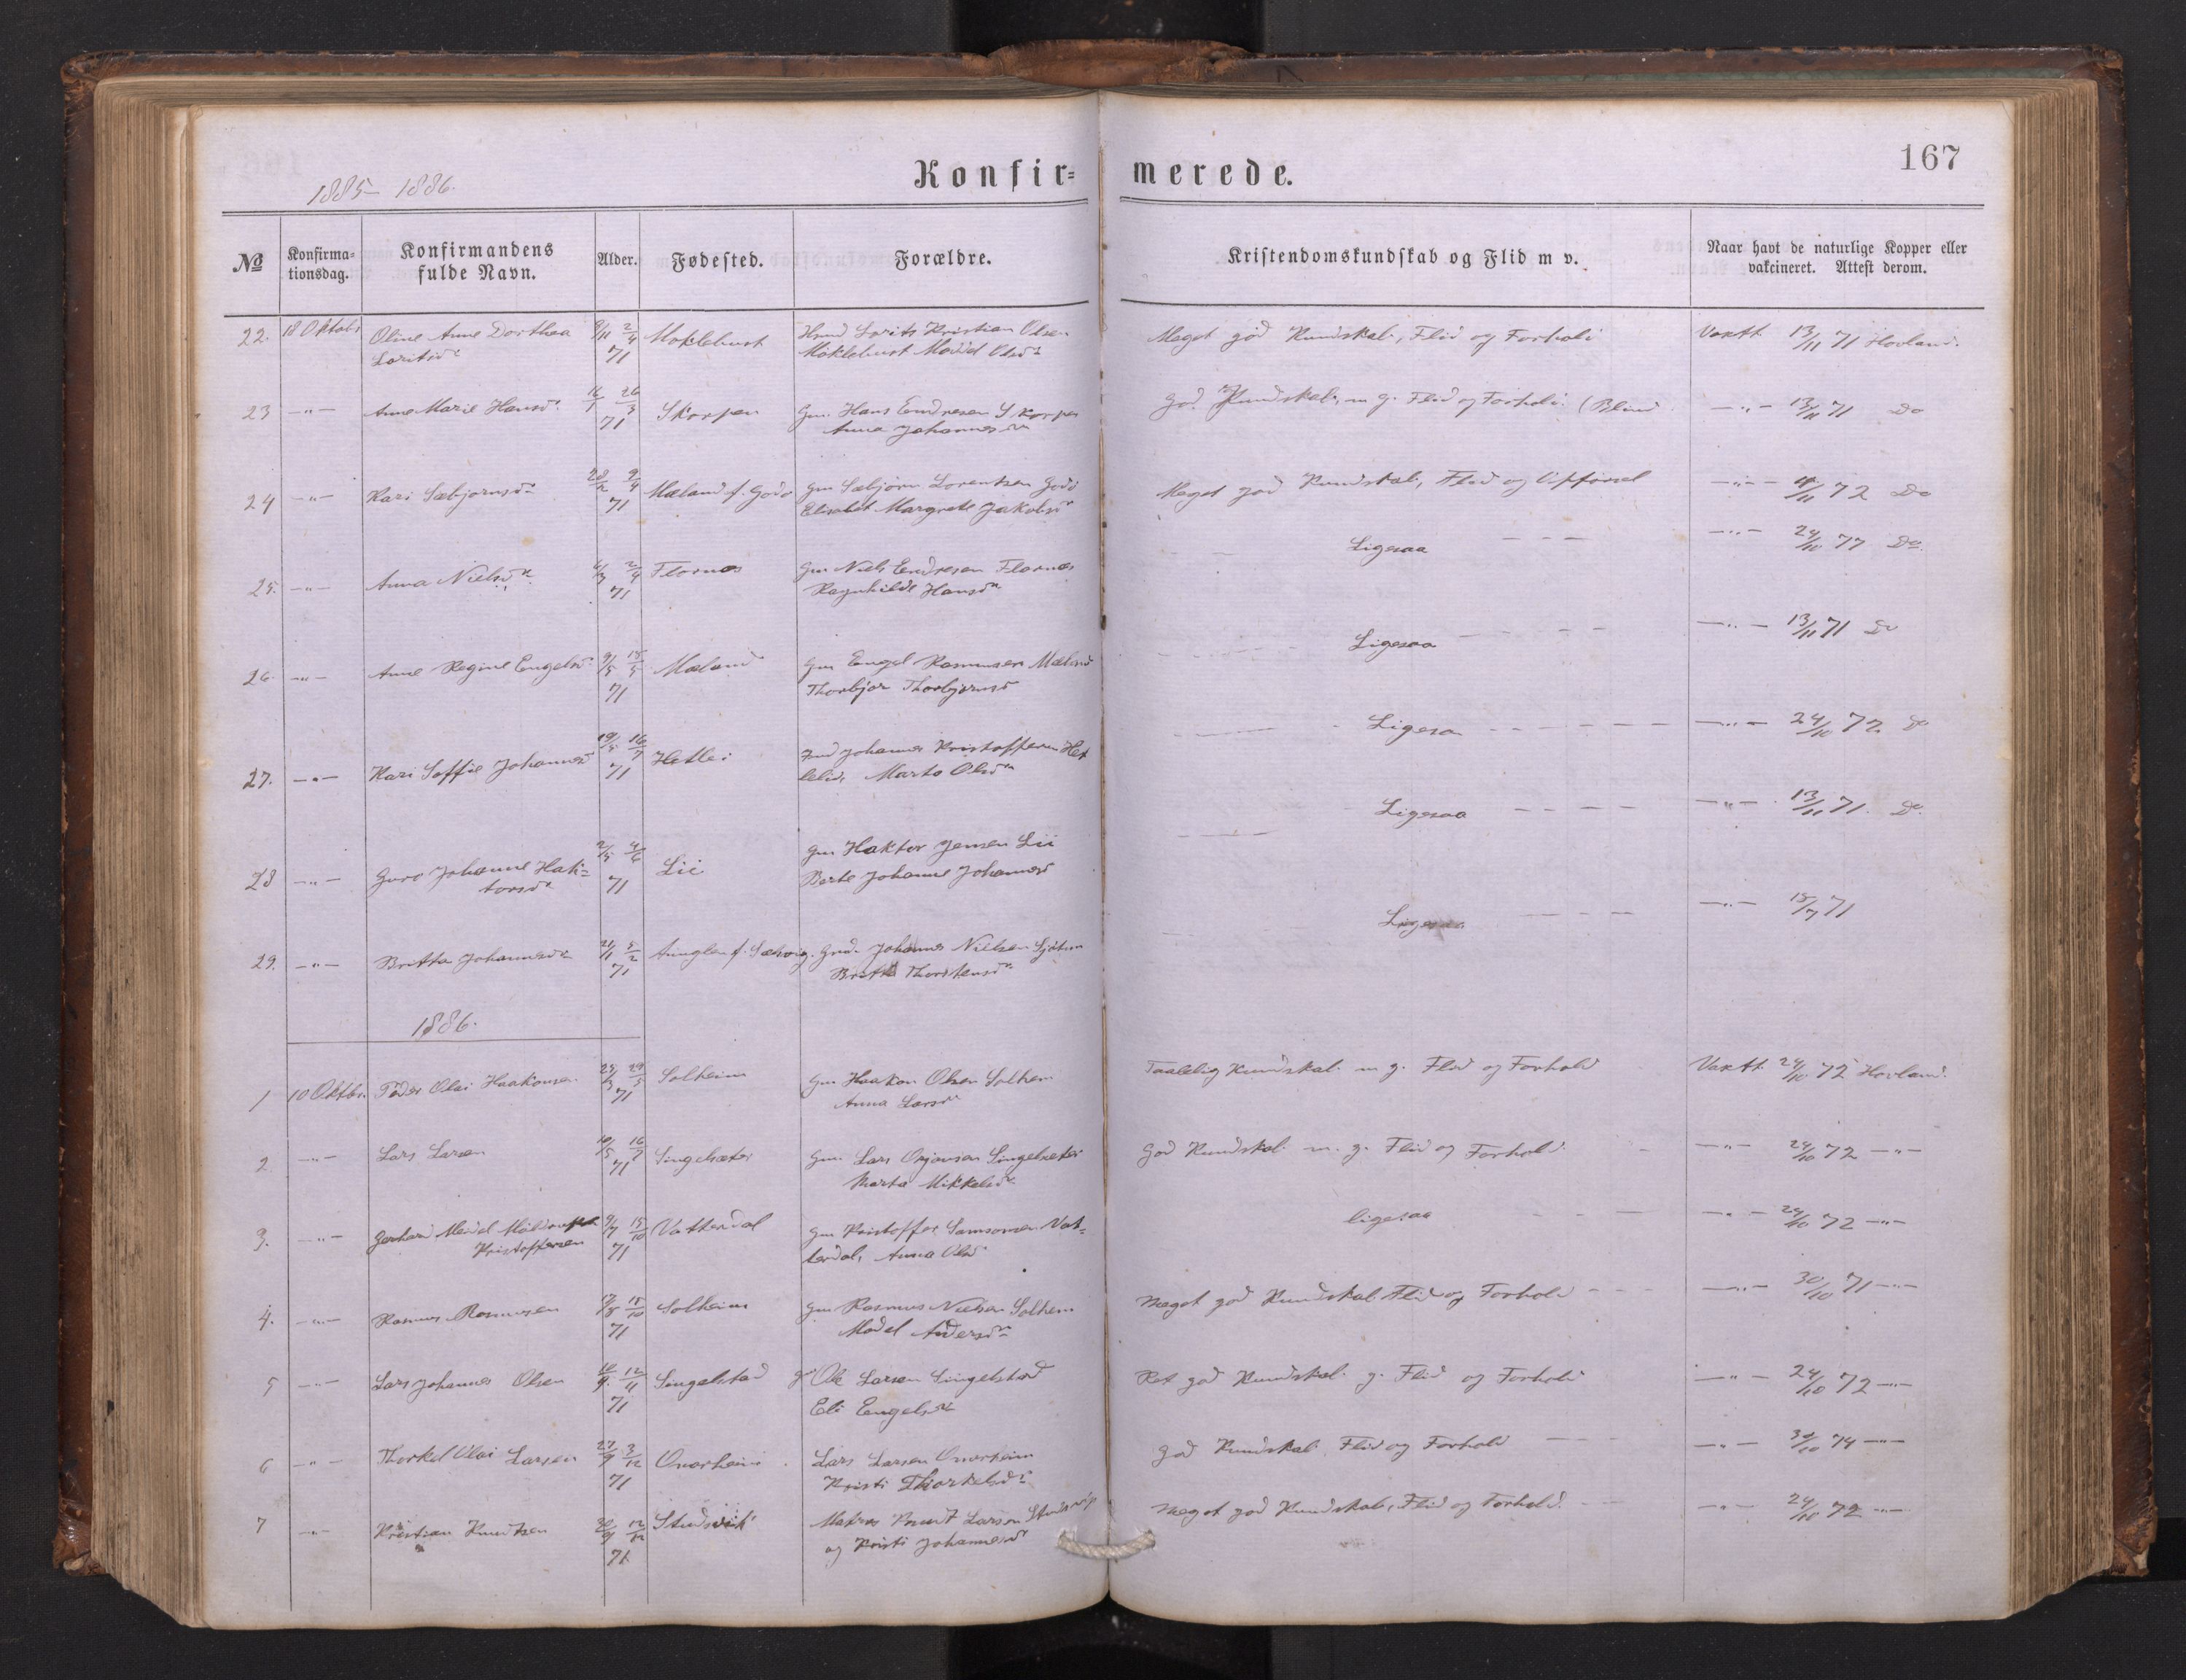 1885 - 1886.
Konfir=
merede.
167
No
Konfirma=
tionsdag.
Konfirmandens
fulde Navn.
Alder.
Fødested.
Forældre.
Kristendomskundskab og Flid m v.
Naar havt de naturlige Kopper eller
vakcineret. Attest derom.
22. 18 Oktobr Oline Anne Dorthea 2/4 Møklebust Lorits Kristian Olsen Meget god Kundskab, Flid og Forhold Vaktt. 13/11 71 Hovland.
71 Møklebust
23 -"- Anne Marie Hansd. 26/3 Skorpen Gm. Hans Endresen Skorpen God Kundskab, m g. Flid og Forhold. (Blind -"- 13/11 71 Do
71 Anna Johannesdr
24 -"- Kari Sæbjørnsdr 28/2 9/4 Mæland f. Godø Gm Sæbjørn Lorentsen Godø Meget god Kundskab, Flid og Opførsel -"- 72 Do
71 Elisabet Margrete Jakobsdr
25. -"- Anna Nielsdr 2/4 Flornes Gm Niels Endresen Flornes Ligesaa -"- 24/10 77 Do
71 Ragnhilde Hansdr
26. -"- Anne Regine Engelsd. 9/5 Mæland Gm Engel Rasmusen Mæland Ligesaa -"- 13/11 71 Do
71 Thorbjør Thorbjørnsd
27. -"- Kari Soffie Johannesd 19/5 16/7 Hetlei Johannes Kristoffersen Het Ligesaa -"- 24/10 72 Do
71 lelid, Marta Olsdr
28 -"- Guro Johanne Hak= 4/6 Lii Gm Haktor Jensen Lii Ligesaa -"- 13/11 71. Do
torsdr 71 Berte Johanne Johannesd
29. -"- Britta Johannesdr 5/2 f. Sætvig. Johannes Nielsen Ligesaa -"- 15/7 71
71 Britta Thorstensdr
1886.
1 10 Oktbr. Peder Olai Haakonsen 29/5 Solheim Gm Haakon Olsen Solheim Taalelig Kundskab m g. Flid og Forhold Vaktt. 24/10 72 Hovland.
71 Anna Larsdr
2 -"- Lars Larsen 10/5 16/7 Singelsæter Gm. Lars Singelsæter God Kundskab m. g. Flid og Forhold. -"- 24/10 72 -"-
71 Marta Mikkelsdr
3. -"- Gerhard 9/7 15/10 Vatterdal Gm Kristoffer Samsonsen Vat= ligesaa -"- 24/10 72 -"-
Kristoffersen 71 terdal, Anna Olsd
4. -"- Rasmus Rasmusen 15/10 Solheim Gm Rasmus Nielsen Solheim Meget god Kundskab Flid og Forhold -"- 30/10 71 -"-
71 Madel Andersdr
5 -"- Lars Johannes Olsen 12/11 Singelstad Ole Larsen Singelstad Ret god Kundskab g. Flid og Forhold -"- 24/10 72 -"-
71 Eli Engelsdr
6 -"- Thorkel Olai Larsen 27/9 3/12 Onarheim Lars Larsen Onarheim God Kundskab Flid og Forhold -"- 30/10 74 -"-
71 Kristi Thorkelsdr
7 -"- Kristian Knudtsen 12/12 Studsvik Matros Knudt Larsen Studsvik Meget god Kundskab, Flid og Forhold. -"- 24/10 72 -"-
71 og Kristi Johannesd